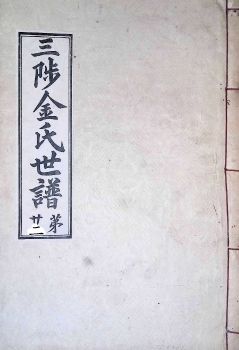 三陟金氏世譜
第廿二